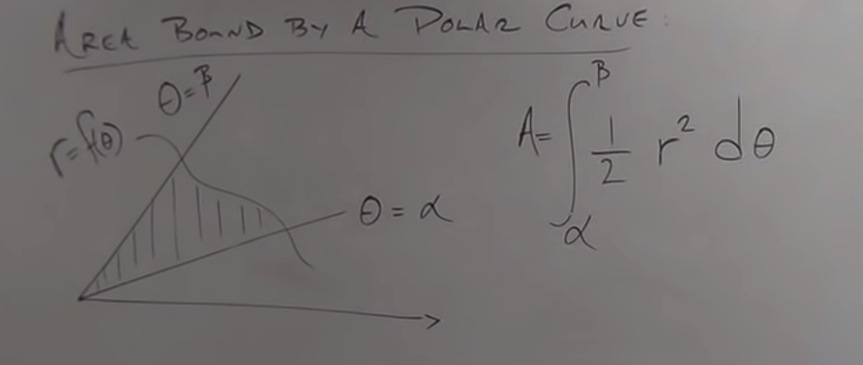 AREA BOUND BY A POLAR CURVE:
θ=β
r=f(θ)
θ = α
A= ∫_α^β 1/2 r² dθ